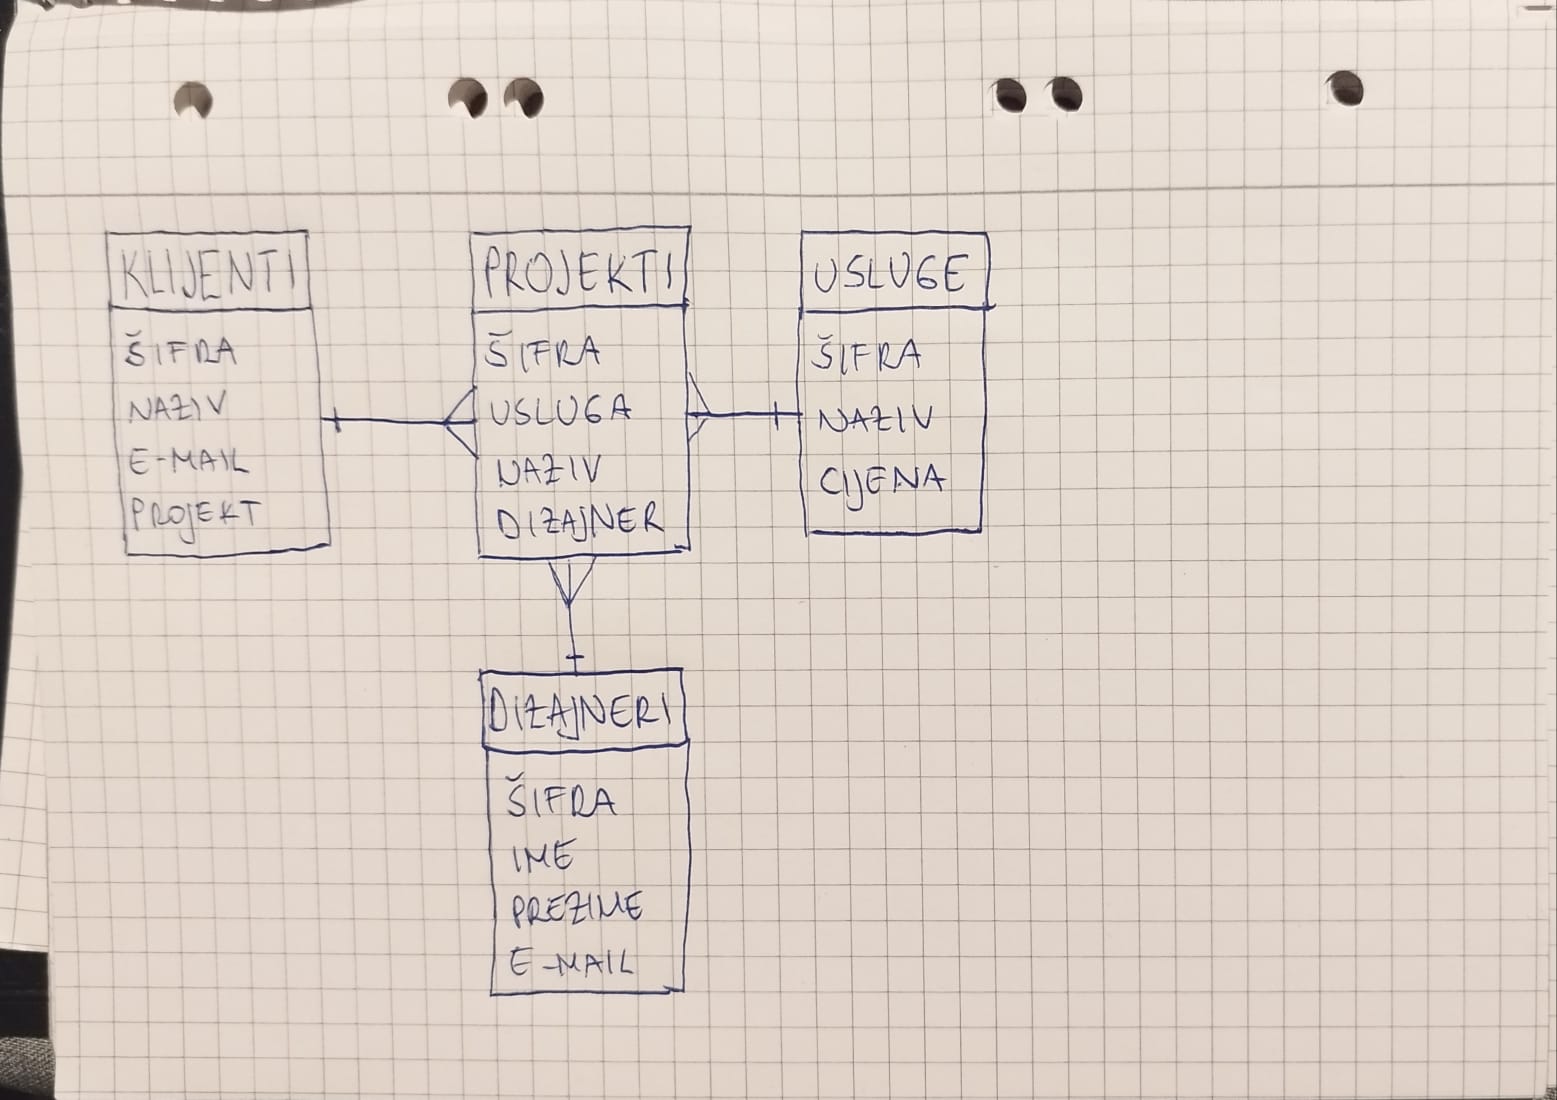 KLIJENTI
ŠIFRA
NAZIV
E-MAIL
PROJEKT
PROJEKTI
ŠIFRA
USLUGA
NAZIV
DIZAJNER
USLUGE
ŠIFRA
NAZIV
CIJENA
DIZAJNERI
ŠIFRA
IME
PREZIME
E-MAIL